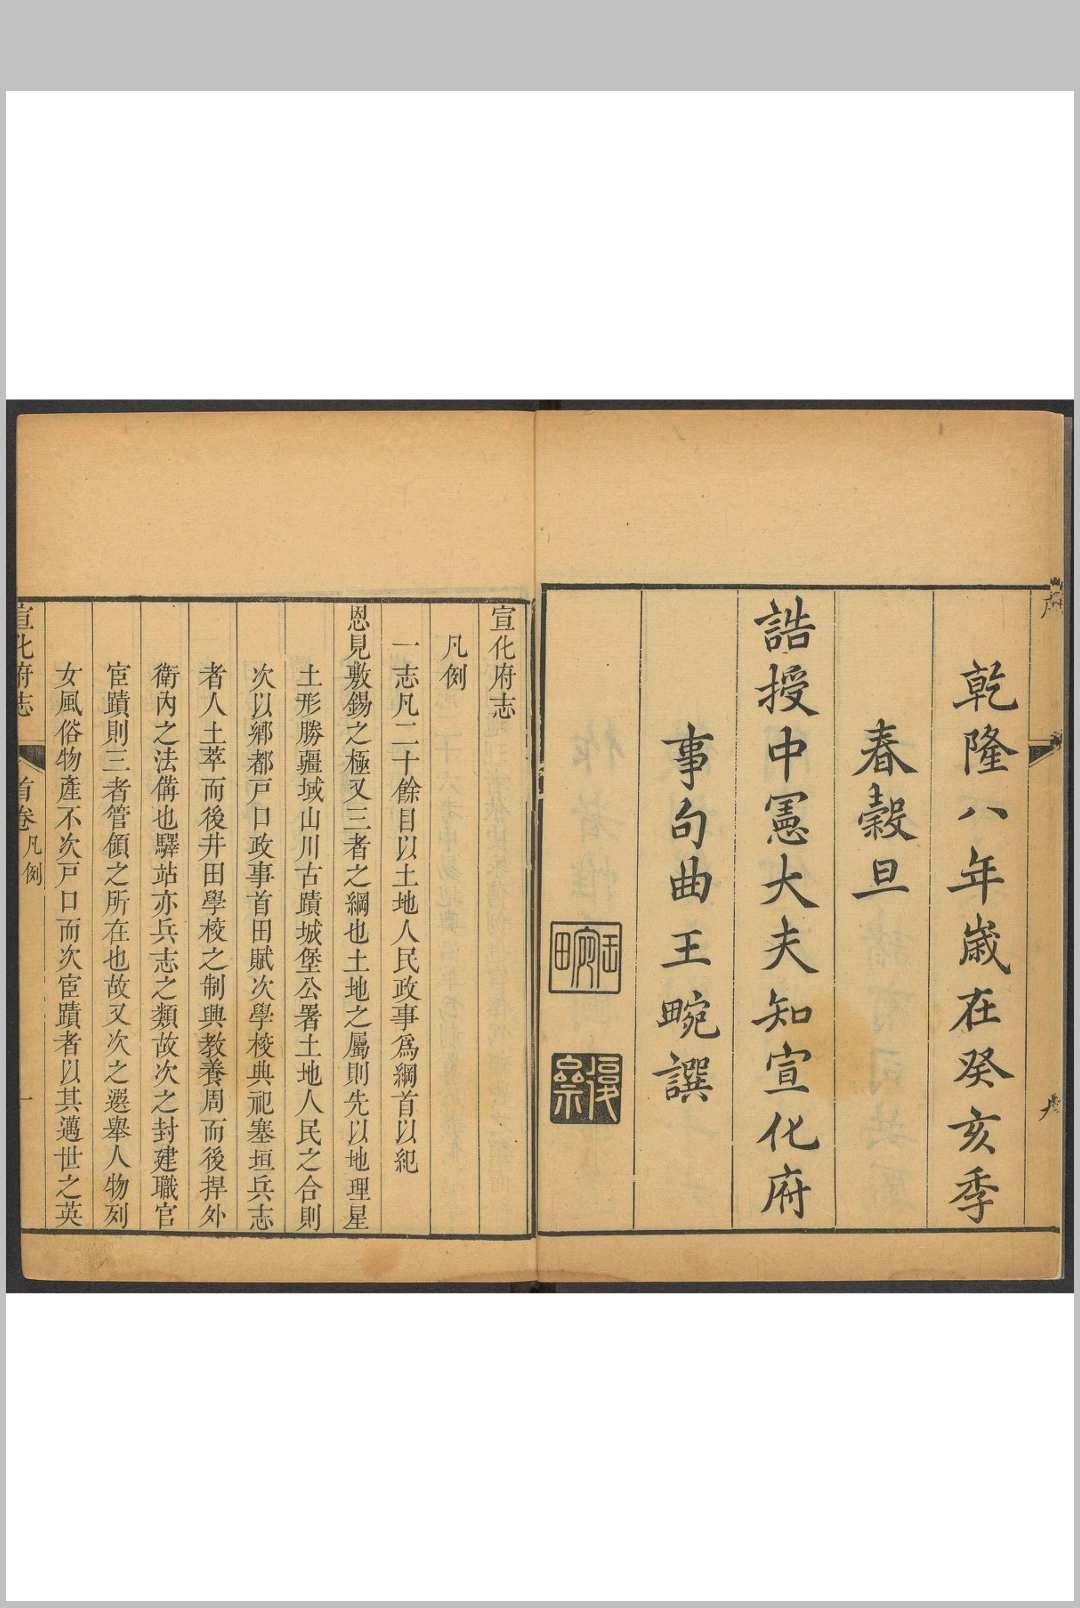 乾隆八年歲在癸亥季
春穀旦
誥授中憲大夫知宣化府
事句曲王畹譔
宣化府志
凡例
一志凡二十餘目以土地人民政事爲綱首以紀
恩見敷錫之極又三者之綱也土地之屬則先以地理星
土形勝疆域山川古蹟城堡公署土地人民之合則
次以鄉都戸口政事首田賦次學校典祀塞垣兵志
者人土萃而後井田學校之制興教養周而後捍外
衛內之法備也驛站亦兵志之類故次之封建職官
宦蹟則三者管領之所在也故又次之選舉人物列
女風俗物產不次戸口而次宦蹟者以其邁世之英
宣化府志
首卷凡例
一